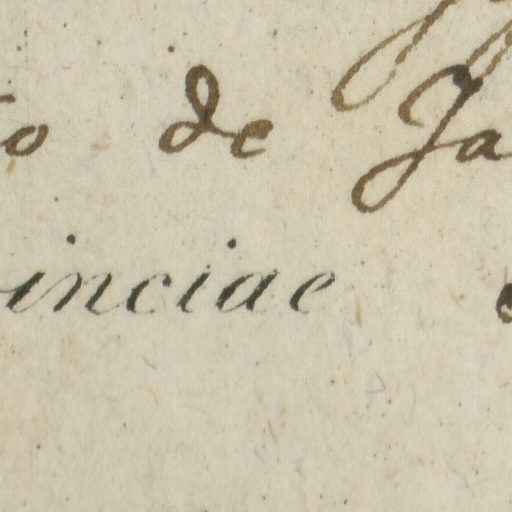 o de Ja
inciae